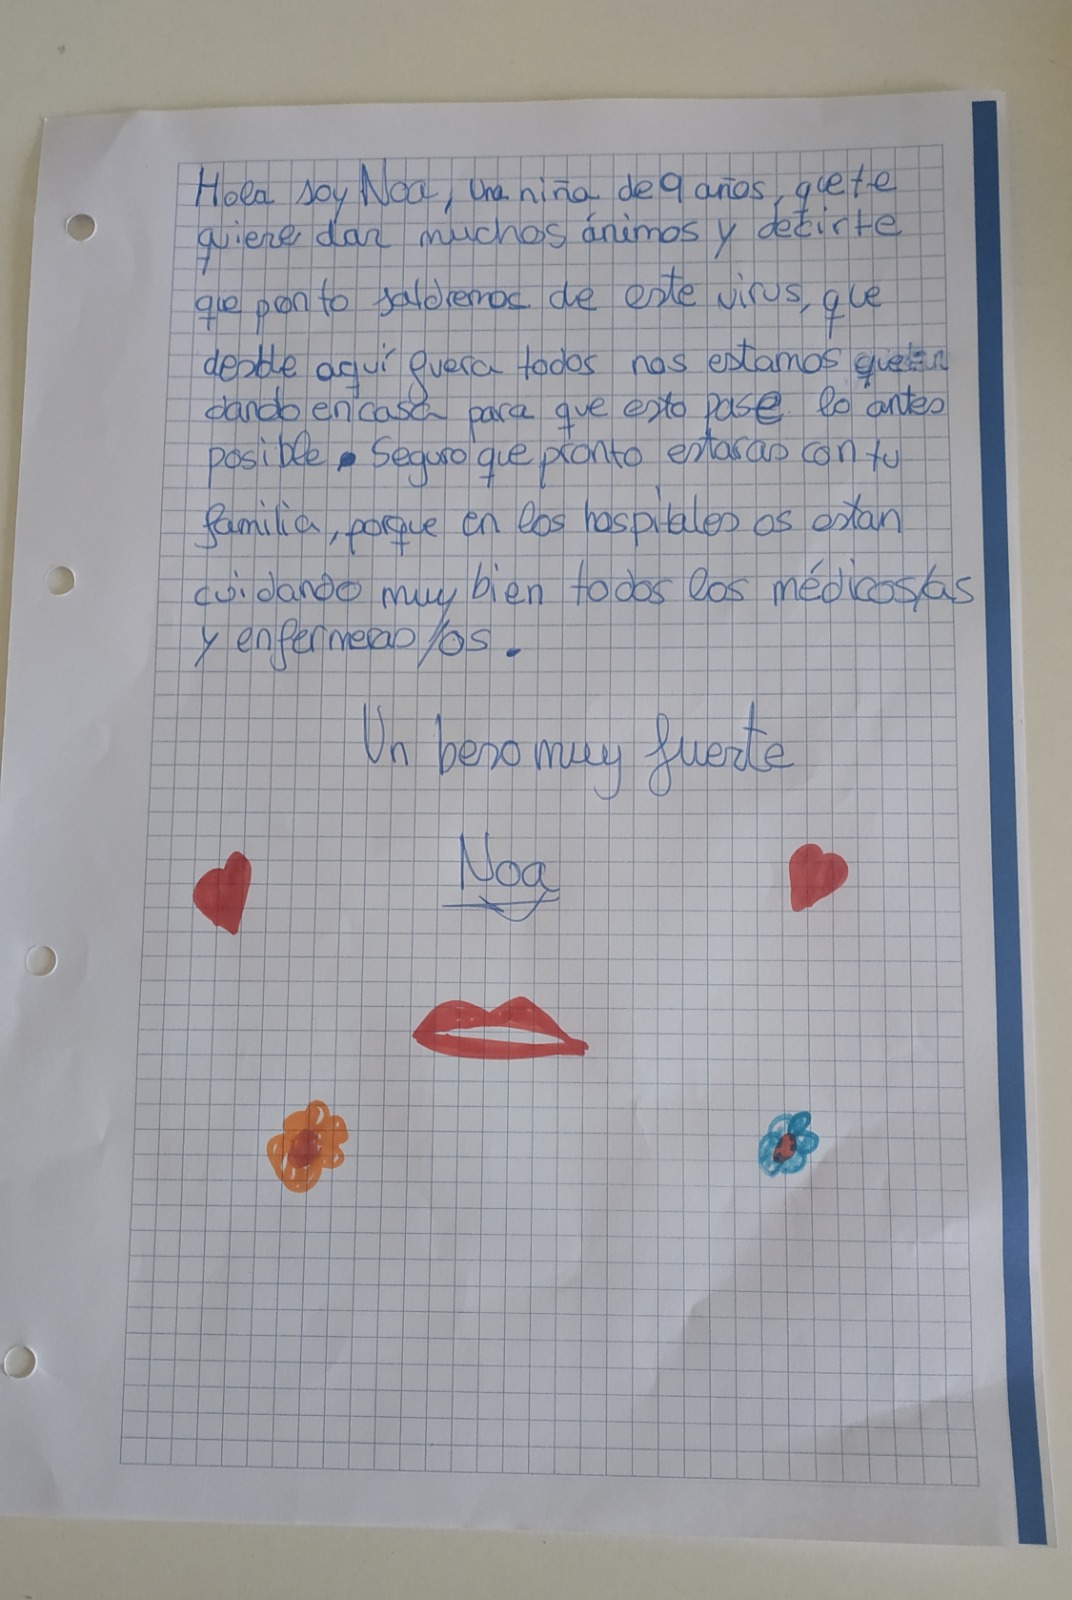 Hola soy Noa, una niña de 9 años, que te
quiere dar muchos ánimos y decirte
que pronto saldremos de este virus, que
desde aquí fuera todos nos estamos quedan
dando en casa para que esto pase lo antes
posible. Seguro que pronto estaras con tu
familia, porque en los hospitales os estan
cuidando muy bien todos los médicos/as
y enfermeras/os.
Un beso muy fuerte
Noa